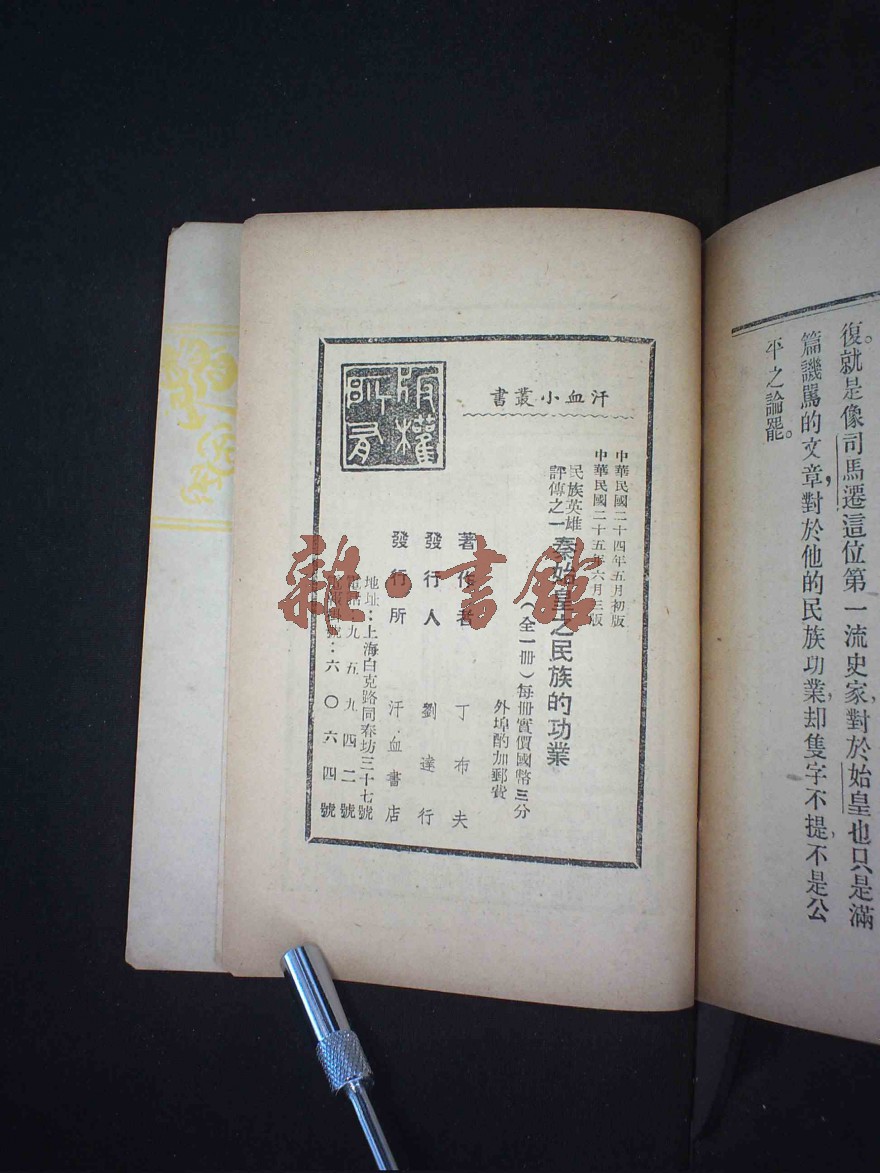 復。就是像司馬遷這位第一流史家,對於始皇也只是滿
篇譏罵的文章,對於他的民族功業,却隻字不提,不是公
平之論罷。
汗血小叢書
版權所有
中華民國二十四年五月初版
中華民國二十五年六月三版
民族英雄評傳之一
秦始皇之民族的功業
(全一冊)每冊實價國幣三分
外埠酌加郵費
著作者 丁布夫
發行人 劉達行
發行所 汗血書店
地址:上海白克路同春坊三十七號
電話:九五九四二號
號:六〇六四號
雜·書館